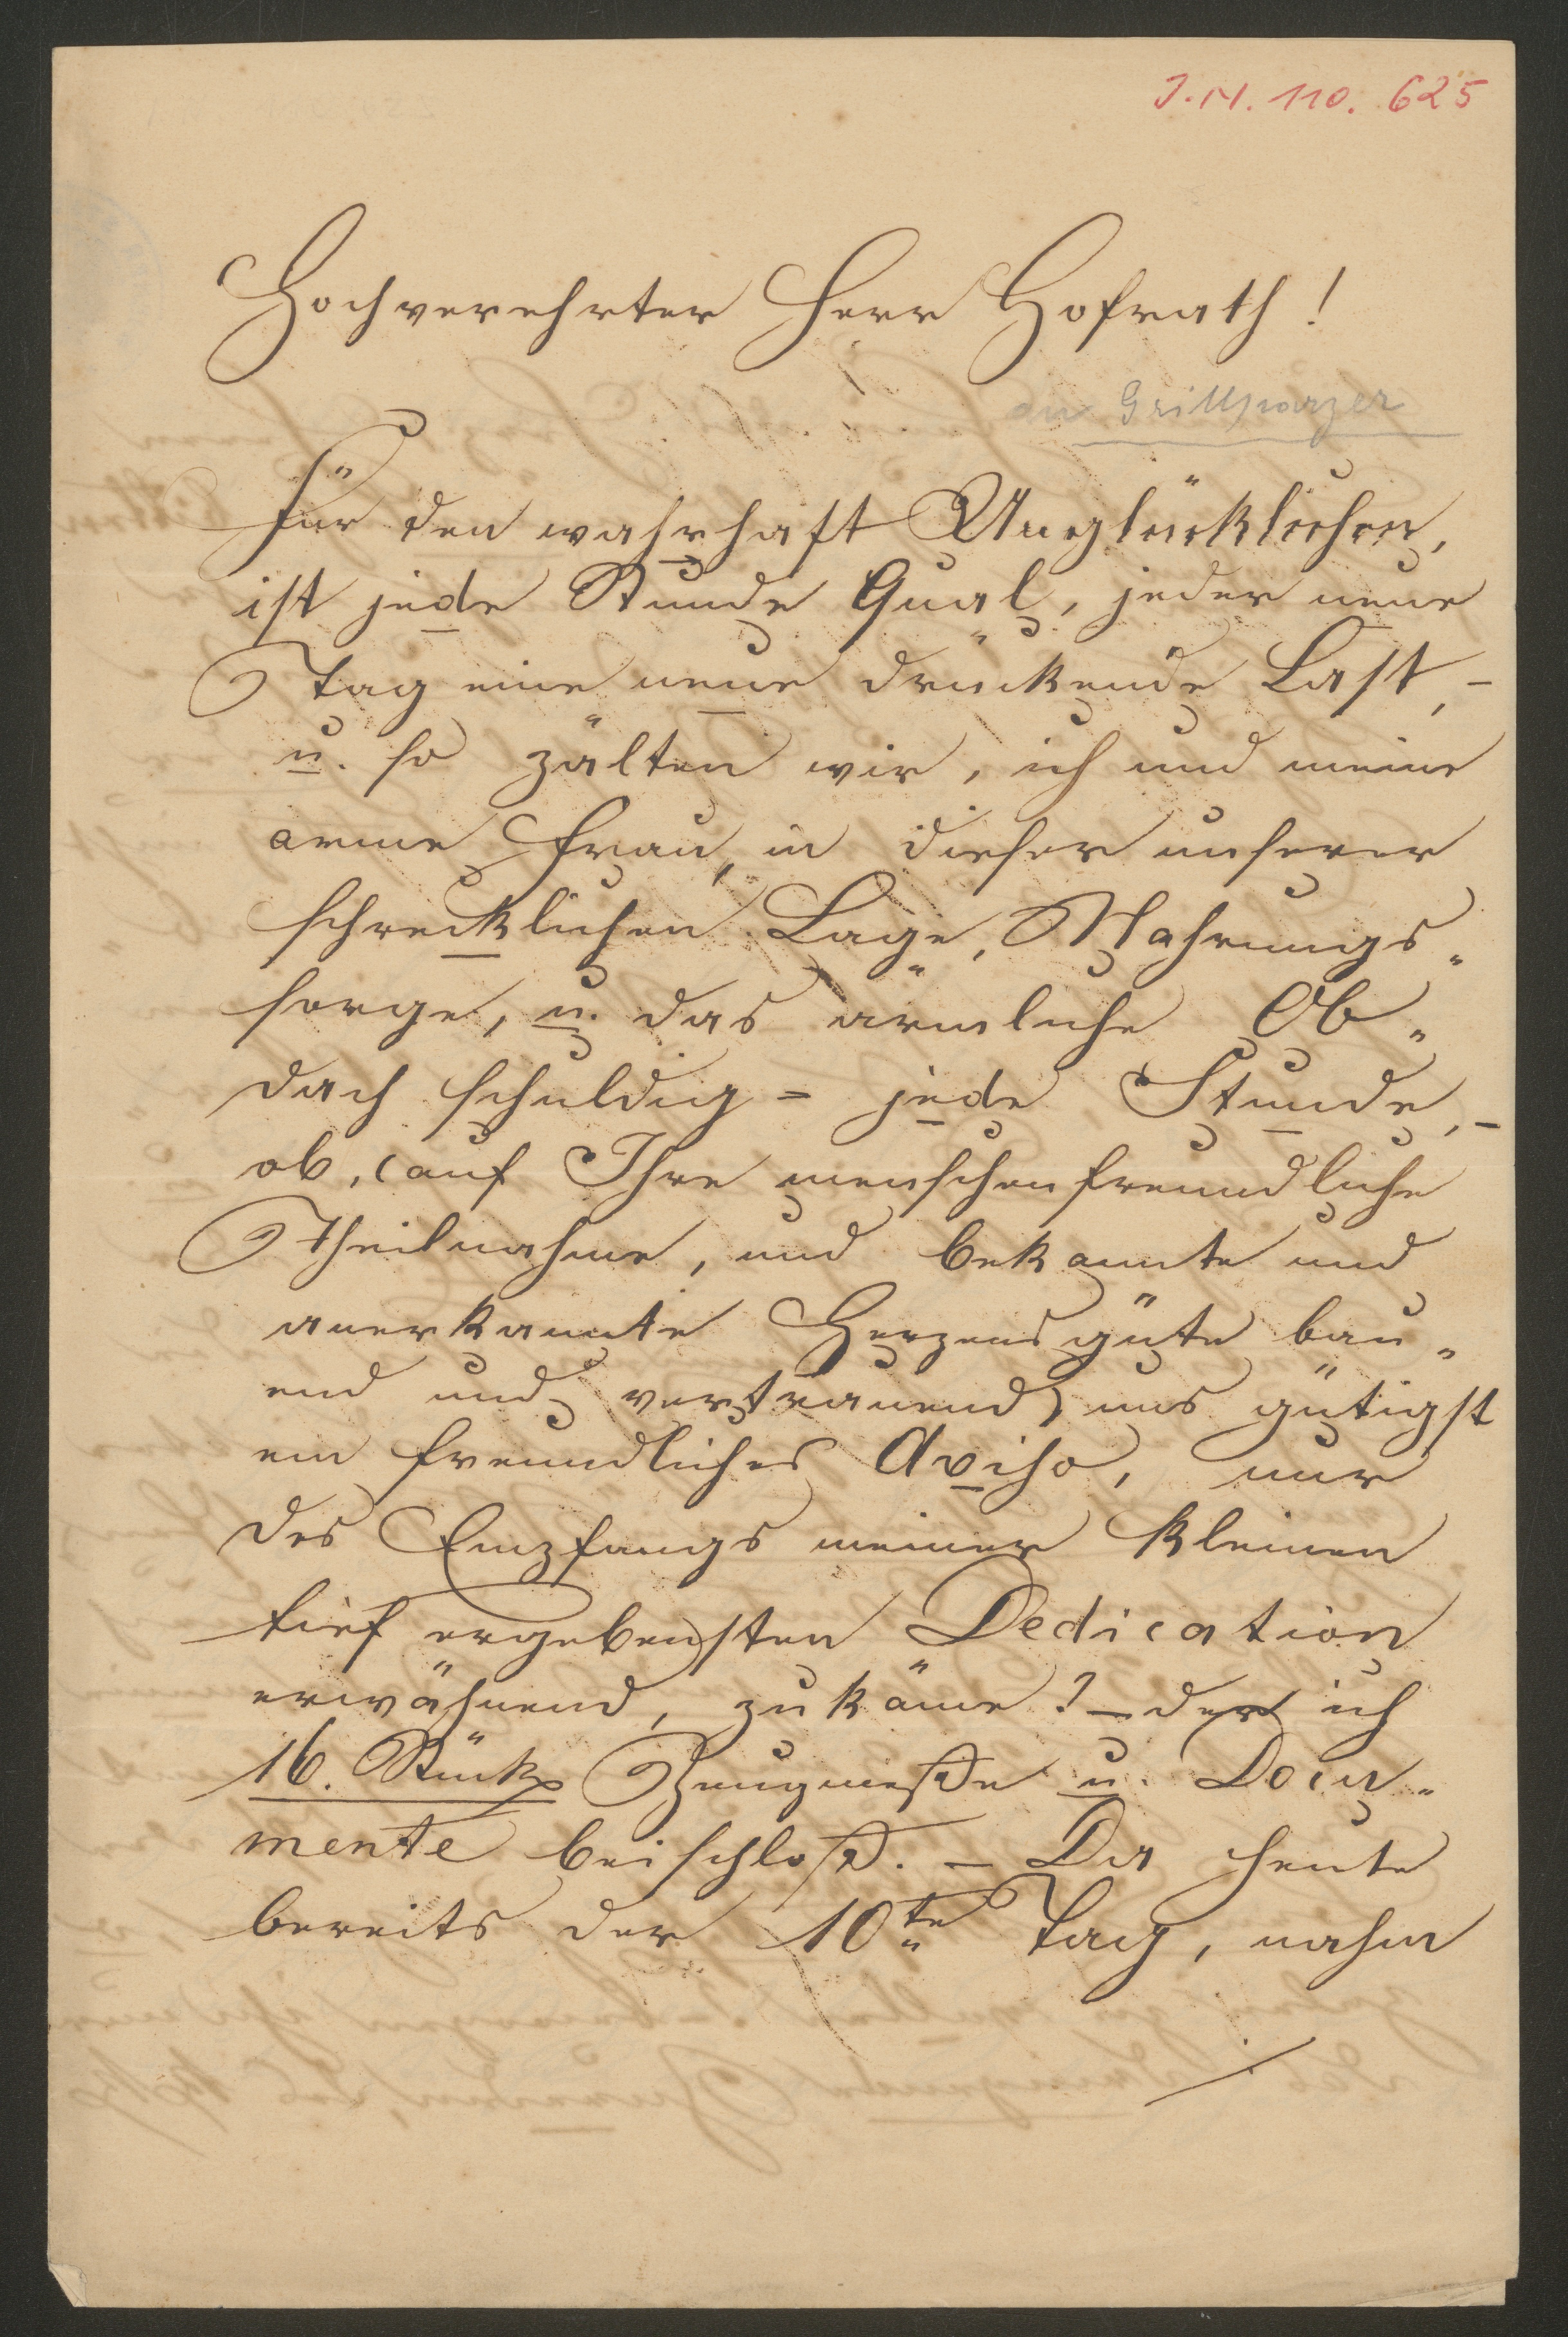 I.N. 110.625
Hochverehrter Herr Hofrath!
an Grillparzer
Für den wahrhaft Unglücklichen,
ist jede Stunde Qual, jeder neue
Tag eine neue drückende Last, –
u. so zälten wir, ich und meine
arme Frau, in dieser unserer
schrecklichen Lage, Nahrungs„
sorge, u. das ärmliche Ob„
dach schuldig = jede Stunde, –
ob, (auf Ihre menschenfreundliche
Theilnahme, und bekannte und
anerkannte Herzensgüte bau„
end und vertrauend) uns gütigst
ein freundliches Aviso, nur
des Empfangs meiner kleinen
tief ergebensten Dedication
erwähnend, zukäme? – der ich
16. Stück Zeugnisse u. Docu„
mente beischloß. – Da heute
bereits der 10te Tag, nahm